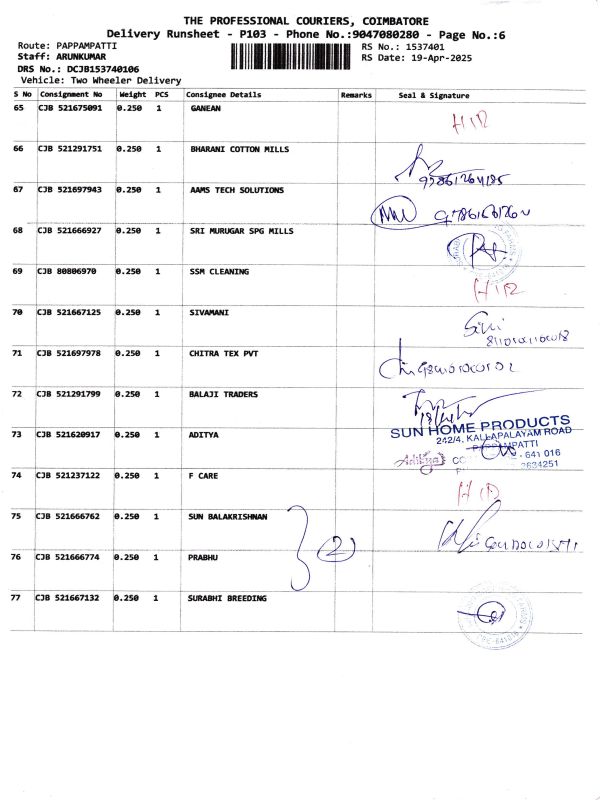 THE PROFESSIONAL COURIERS, COIMBATORE
Delivery Runsheet - P103 - Phone No.:9047080280 - Page No.:6
Route: PAPPAMPATTI
RS No.: 1537401
Staff: ARUNKUMAR
RS Date: 19-Apr-2025
DRS No.: DCJB153740106
Vehicle: Two Wheeler Delivery
S No Consignment No Weight PCS Consignee Details Remarks Seal & Signature
65 CJB 521675091 0.250 1 GANEAN
66 CJB 521291751 0.250 1 BHARANI COTTON MILLS
67 CJB 521697943 0.250 1 AAMS TECH SOLUTIONS
68 CJB 521666927 0.250 1 SRI MURUGAR SPG MILLS
69 CJB 80806970 0.250 1 SSM CLEANING
70 CJB 521667125 0.250 1 SIVAMANI
71 CJB 521697978 0.250 1 CHITRA TEX PVT
72 CJB 521291799 0.250 1 BALAJI TRADERS
SUN HOME PRODUCTS
242/4, KALLAPALAYAM ROAD
73 CJB 521620917 0.250 1 ADITYA
- 641 016
2634251
74 CJB 521237122 0.250 1 F CARE
75 CJB 521666762 0.250 1 SUN BALAKRISHNAN
2
76 CJB 521666774 0.250 1 PRABHU
77 CJB 521667132 0.250 1 SURABHI BREEDING